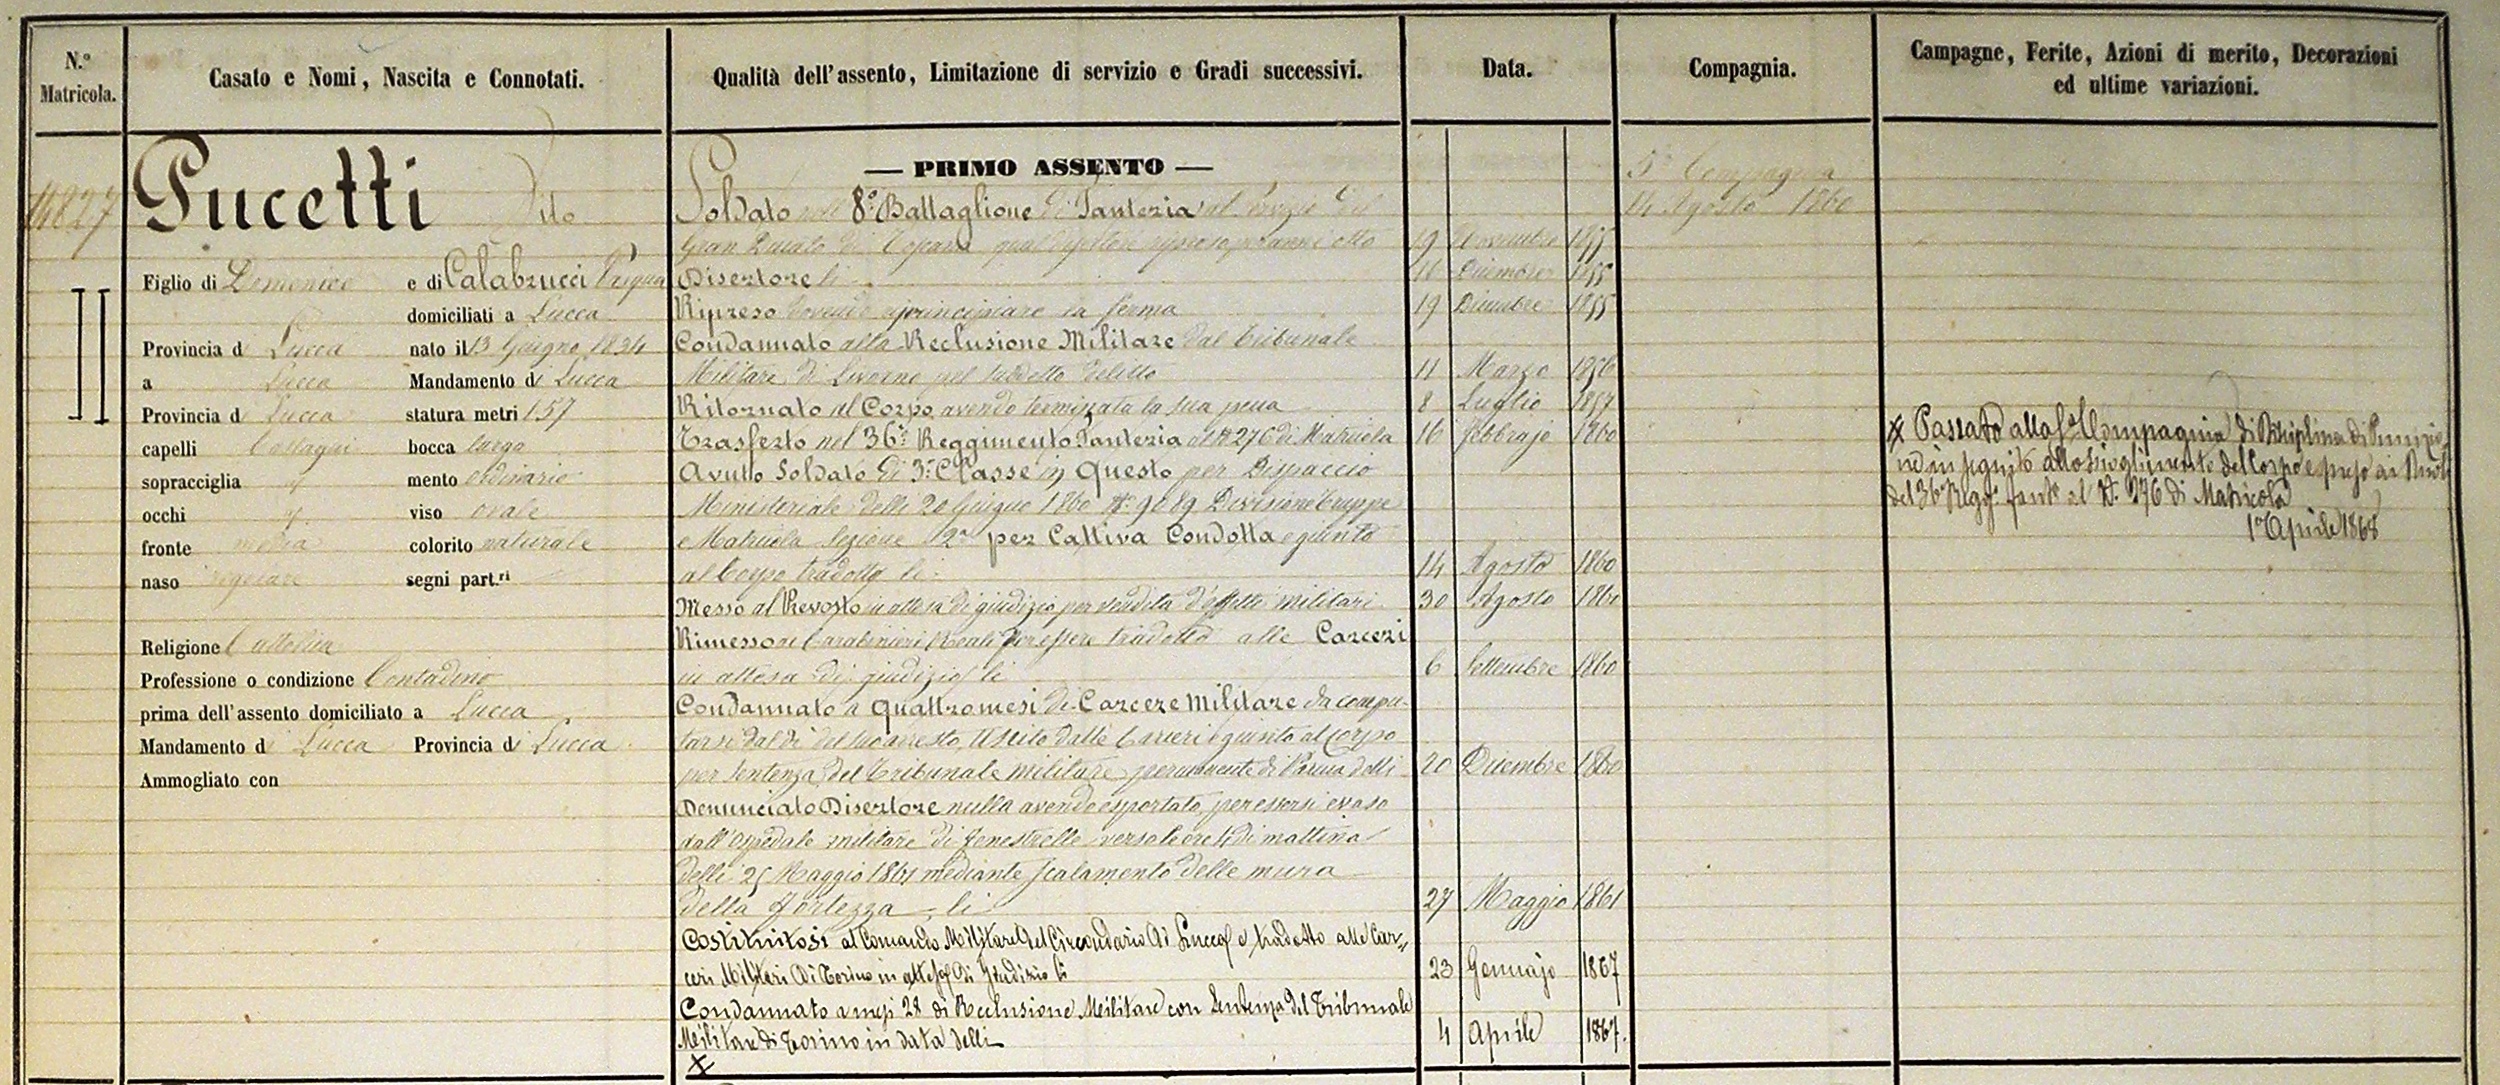 N.º Matricola.
Casato e Nomi, Nascita e Connotati.
Qualità dell'assento, Limitazione di servizio e Gradi successivi.
Data.
Compagnia.
Campagne, Ferite, Azioni di merito, Decorazioni
ed ultime variazioni.
14827
Pucetti Vito
Figlio di Domenico e di Calabrucci
domiciliati a Lucca
Provincia di Lucca nato il 13 Giugno 1834
a Lucca Mandamento di Lucca
Provincia di Lucca statura metri 1.57
capelli Castagni bocca larga
sopracciglia mento ordinario
occhi viso ovale
fronte media colorito naturale
naso regolare segni part.ri
Religione Cattolica
Professione o condizione Contadino
prima dell'assento domiciliato a Lucca
Mandamento di Lucca Provincia di Lucca
Ammogliato con
— PRIMO ASSENTO —
Soldato nell' 8º Battaglione di Fanteria al servizio del
Gran Ducato di Toscana anni otto 19 Novembre 1855
Disertore li 16 Dicembre 1855
Ripreso dovendo riprincipiare la ferma 19 Dicembre 1855
Condannato alla Reclusione Militare dal Tribunale
Militare di Livorno pel suddetto delitto 11 Marzo 1856
Ritornato al Corpo avendo terminata la sua pena 8 Luglio 1857
Trasferto nel 36º Reggimento Fanteria al Nº 276 di Matricola 16 Febbrajo 1860
Avuto Soldato di 3ª Classe in Questo per Dispaccio
Ministeriale delli 20 Giugno 1860 Nº 9089 Divisione Truppe
e Matricola Sezione 2ª per Cattiva Condotta e giunto
al Corpo tradotto li 14 Agosto 1860
Messo al Prevosto in attesa di giudizio per vendita d'effetti militari 30 Agosto 1860
Rimesso ai Carabinieri Reali per essere tradotto alle Carceri
in attesa di giudizio li 6 Settembre 1860
Condannato a quattro mesi di Carcere Militare da compu-
tarsi dal dì del suo arresto, Uscito dalle Carceri e giunto al Corpo
per sentenza del Tribunale militare permanente di Parma delli 20 Dicembre 1860
Denunciato Disertore nulla avendo esportato, per essersi evaso
dall'Ospedale militare di Fenestrelle verso le ore 4 di mattina
delli 25 Maggio 1861 mediante scalamento delle mura
della Fortezza li 27 Maggio 1861
Costituitosi al Comando Militare del Circondario di Lucca e tradotto alle Car-
ceri Militari di Torino in attesa di Giudizio li 23 Gennajo 1867
Condannato a mesi 28 di Reclusione Militare con Sentenza del Tribunale
Militare di Torino in data delli 4 Aprile 1867.
5ª Compagnia
14 Agosto 1860
Passato alla Compagnia di Disciplina di Punizio
ne in seguito allo scioglimento del Corpo e preso ai Ruoli
del 36º Regg. Fant. al N. 276 di Matricola
1º Aprile 1868